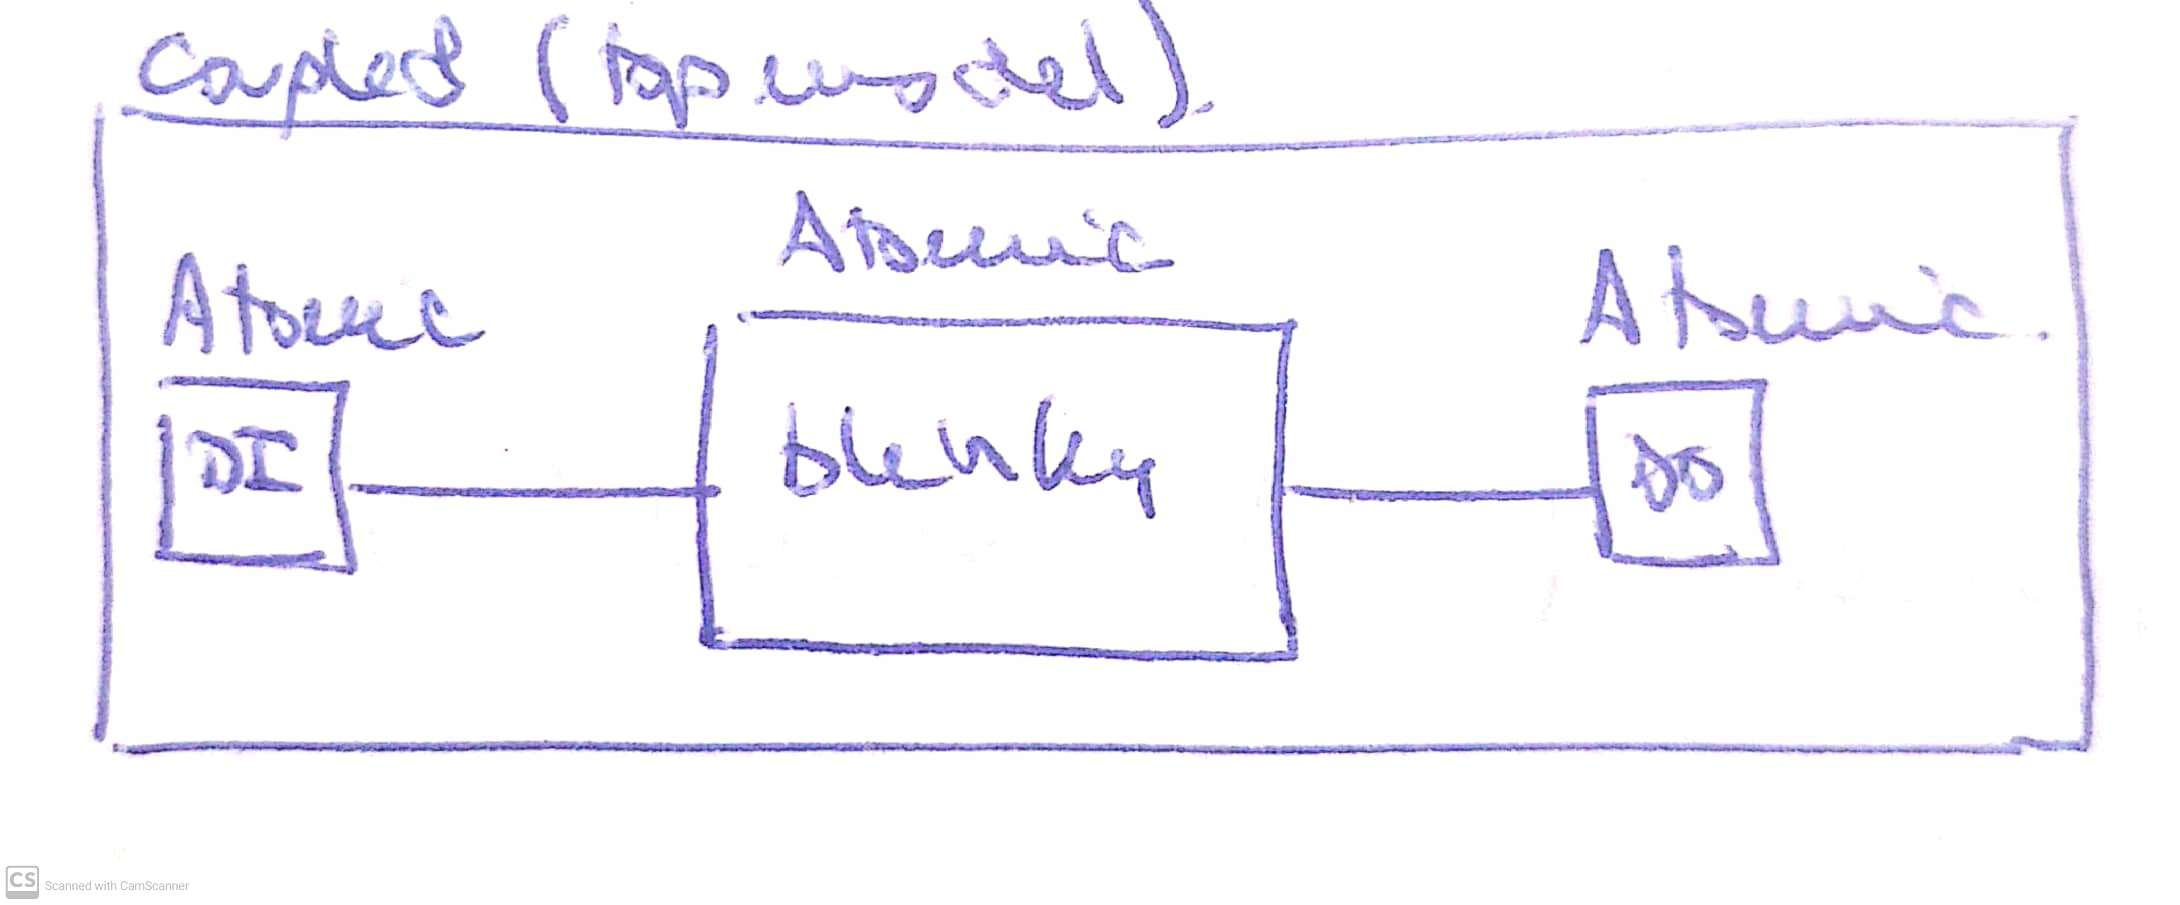 Coupled (top model).
Atomic
Atomic
Atomic.
DI
blinky
DO
CS Scanned with CamScanner